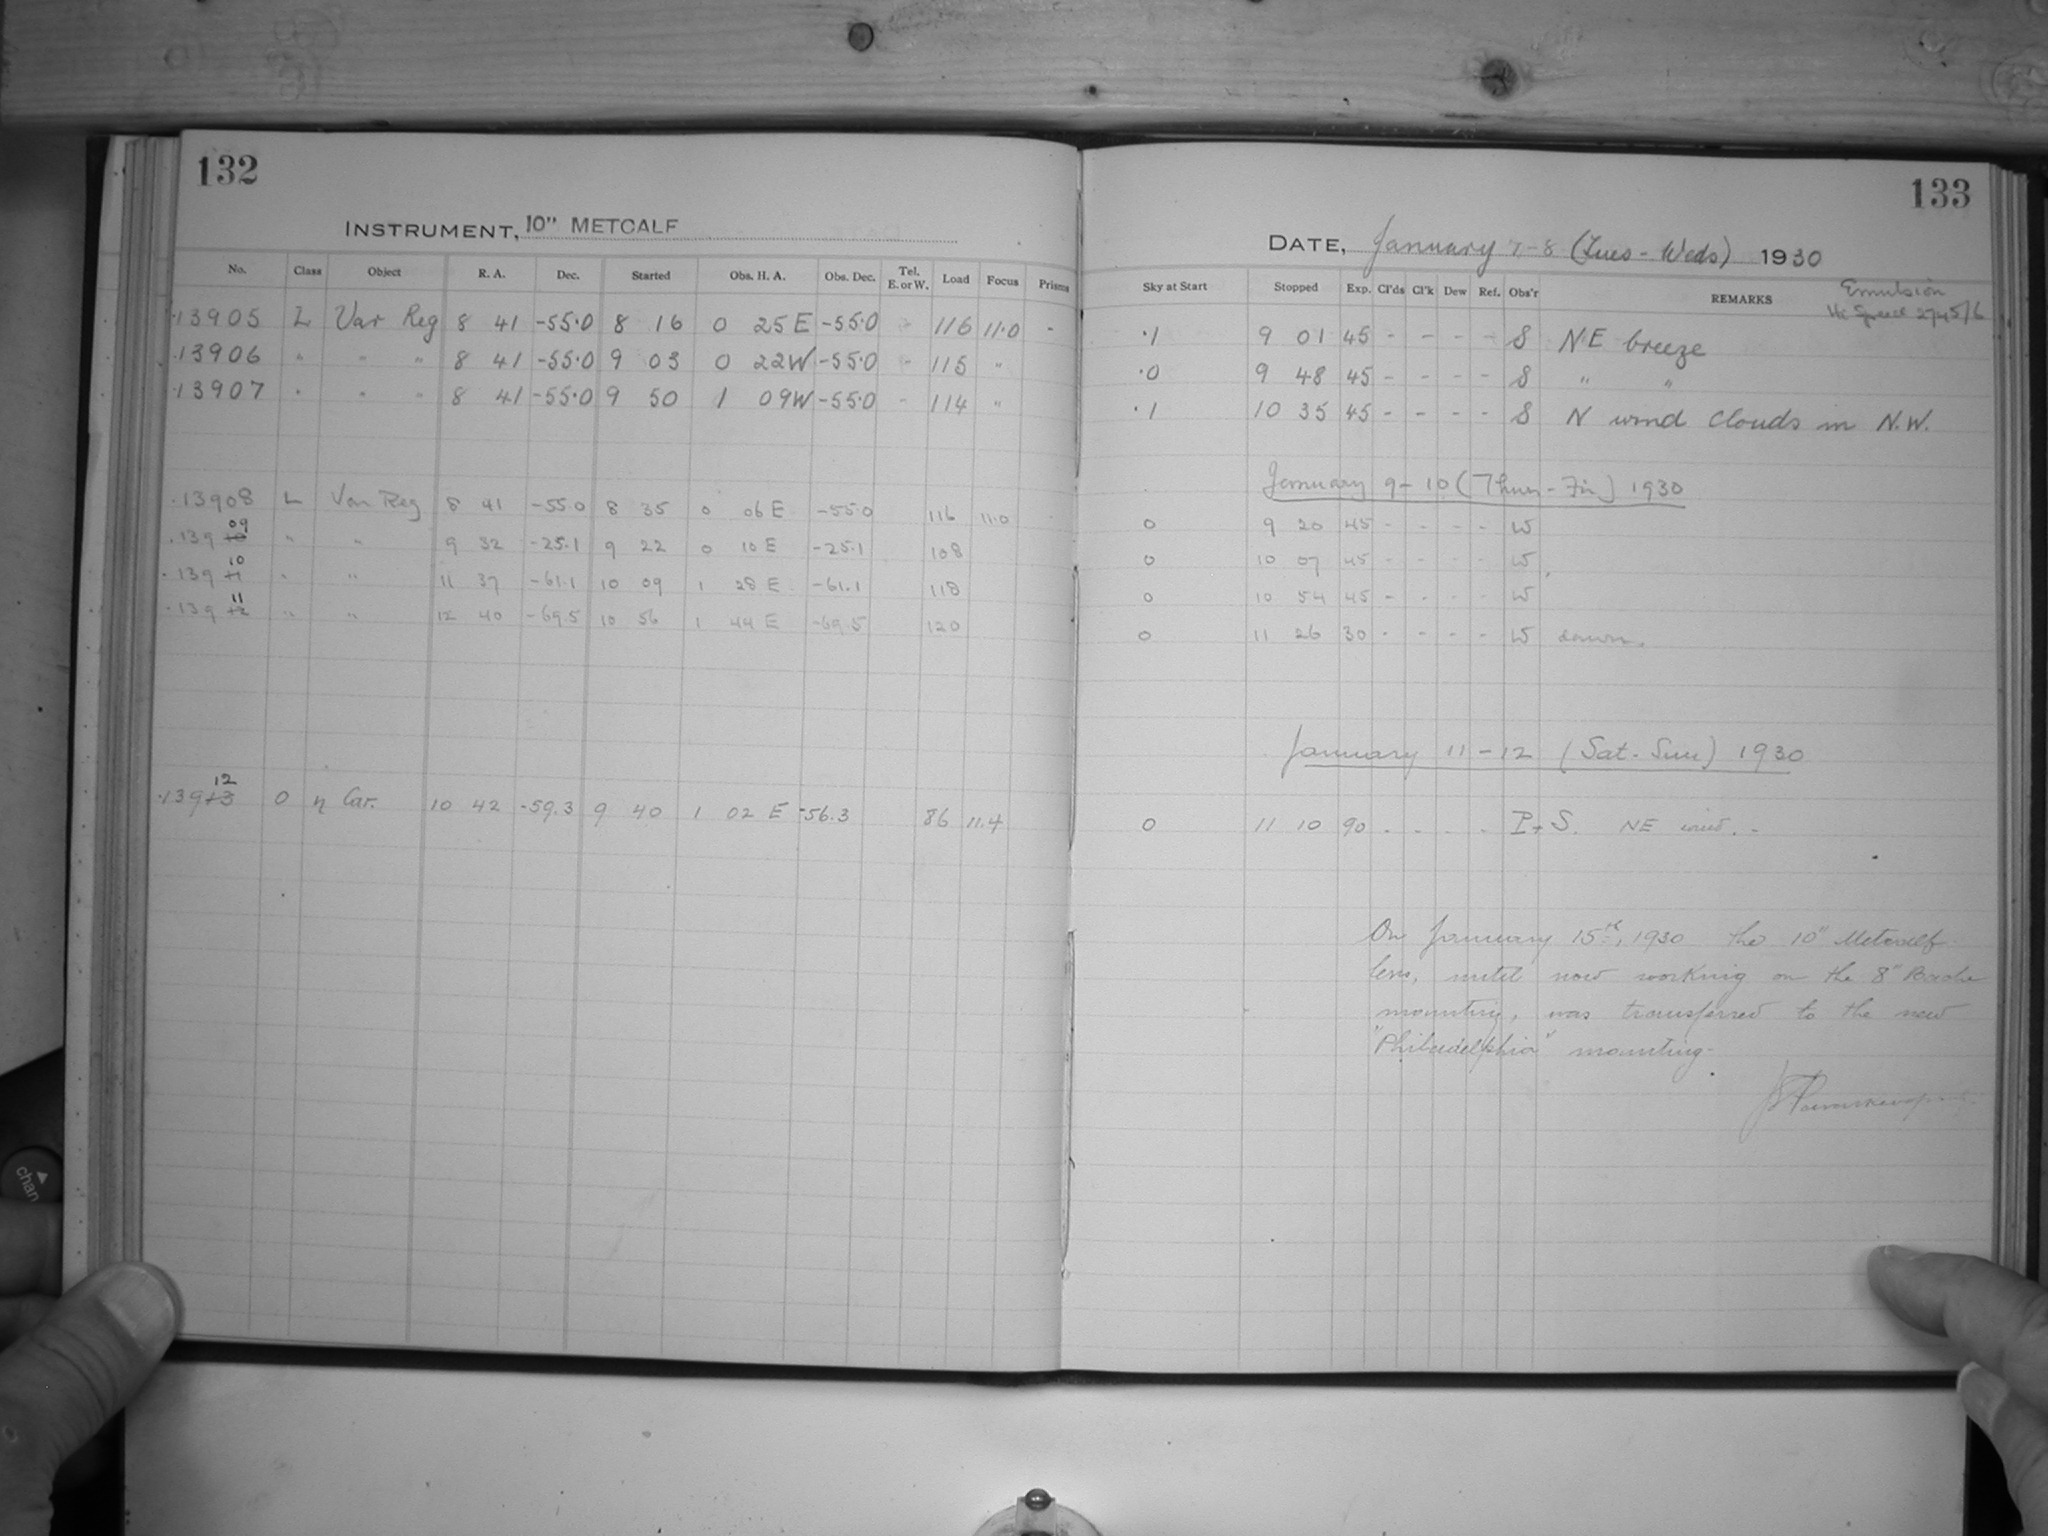 132
INSTRUMENT, 10" METCALF
No. Class Object R. A. Dec. Started Obs. H. A. Obs. Dec. Tel. E. or W. Load Focus Prisms
13905 L Var Reg 8 41 -55.0 8 16 0 25 E -55.0 - 116 11.0 -
13906 " " " 8 41 -55.0 9 03 0 22W -55.0 - 115 "
13907 " " " 8 41 -55.0 9 50 1 09W -55.0 - 114 "
13908 L Var Reg 8 41 -55.0 8 35 0 06 E -55.0 116 11.0
139 10 09 " " 9 32 -25.1 9 22 0 10 E -25.1 108
139 11 10 " " 11 37 -61.1 10 09 1 28 E -61.1 118
139 12 11 " " 12 40 -69.5 10 56 1 44 E -69.5 120
139 13 12 O η Car. 10 42 -59.3 9 40 1 02 E -56.3 86 11.4
133
DATE, January 7-8 (Tues - Weds) 1930
Sky at Start Stopped Exp. Cl'ds Cl'k Dew Ref. Obs'r REMARKS Emulsion
Hi Speed 2745/6
.1 9 01 45 - - - - S NE breeze
.0 9 48 45 - - - - S " "
.1 10 35 45 - - - - S N wind Clouds in N.W.
January 9-10 (Thurs - Fri) 1930
0 9 20 45 - - - - W
0 10 07 45 - - - - W
0 10 54 45 - - - - W
0 11 26 30 - - - - W dawn.
January 11-12 (Sat - Sun) 1930
0 11 10 90 - - - - P+S. NE wind. -
On January 15th, 1930 the 10" Metcalf
lens, until now working on the 8" Bache
mounting, was transferred to the new
"Philadelphia" mounting.
chan